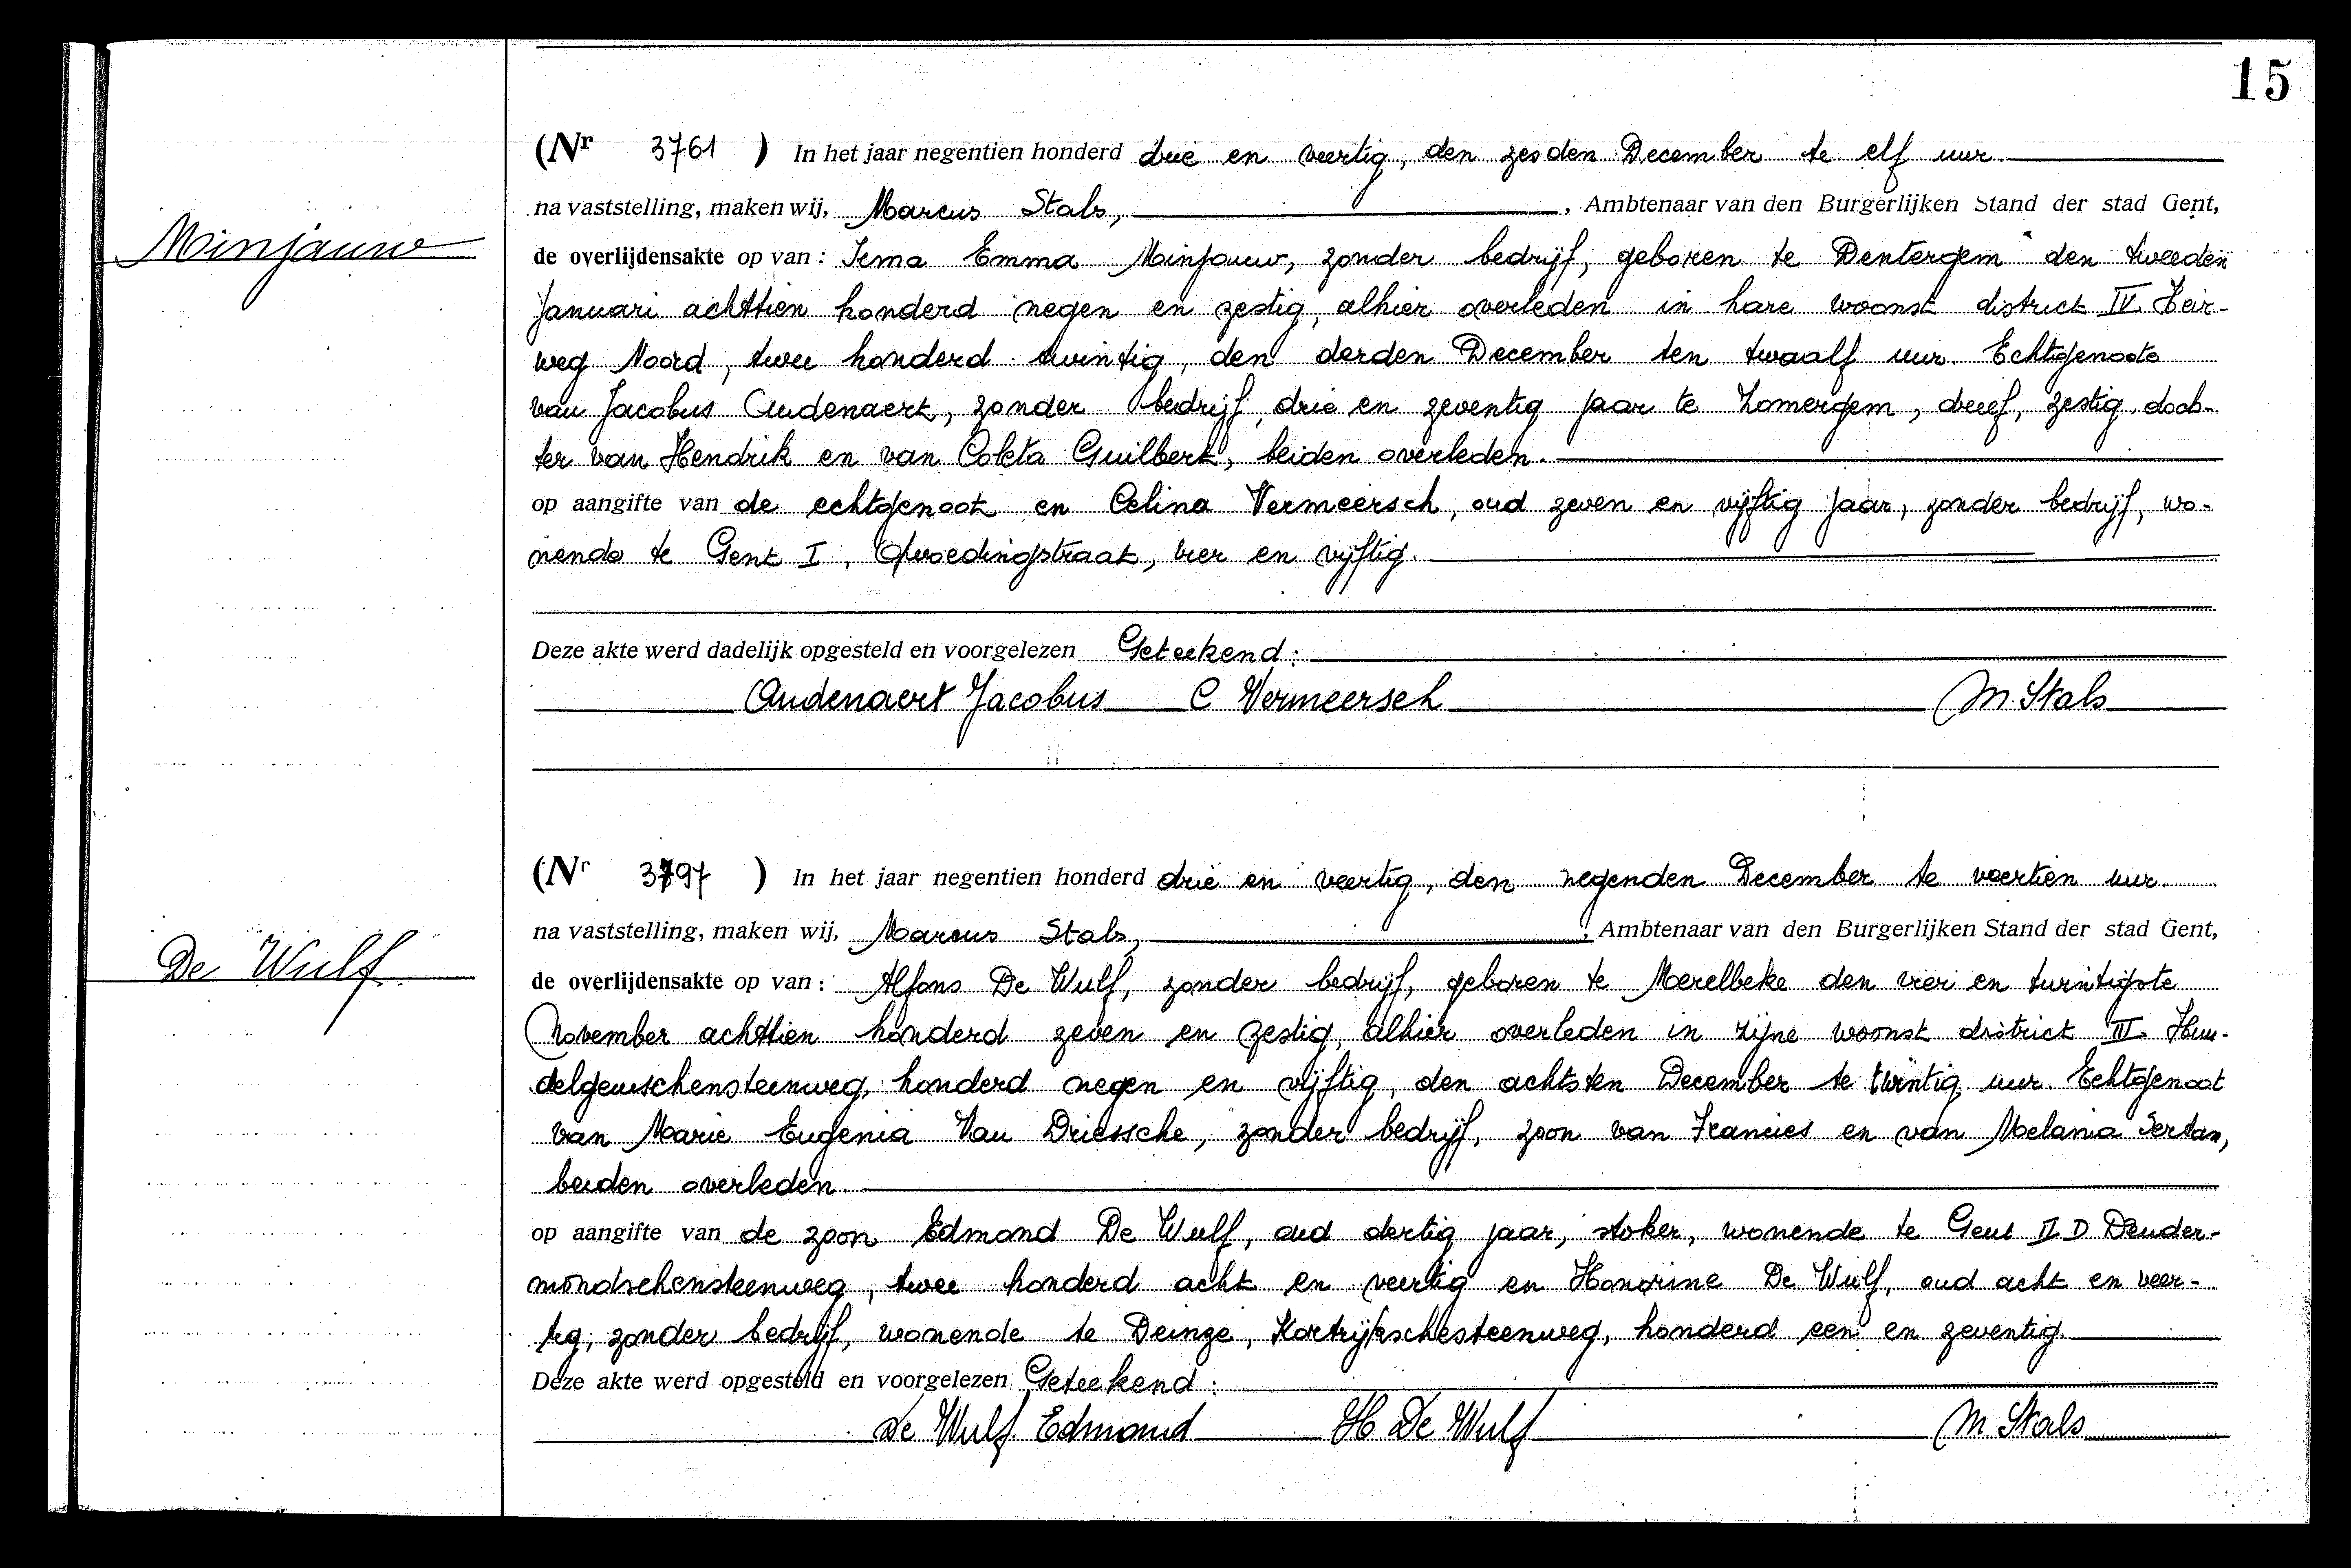 15
(Nr 3761 ) In het jaar negentien honderd drie en veertig, den zesden December te elf uur
na vaststelling, maken wij, Marcus Stals, , Ambtenaar van den Burgerlijken Stand der stad Gent,
Minjauw
de overlijdensakte op van : Irma Emma Minjauw, zonder bedrijf, geboren te Dentergem den tweeden
Januari achttien honderd negen en zestig, alhier overleden in hare woonst district IV Heir-
weg Noord, twee honderd twintig, den derden December ten twaalf uur. Echtgenoote
van Jacobus Audenaert, zonder bedrijf, drie en zeventig jaar te Zomergem, dreef, zestig, doch-
ter van Hendrik en van Coleta Guilbert, beiden overleden.
op aangifte van de echtgenoot en Celina Vermeersch, oud zeven en vijftig jaar, zonder bedrijf, wo-
nende te Gent I, Opvoedingstraat, vier en vijftig.
Deze akte werd dadelijk opgesteld en voorgelezen Geteekend :
Audenaert Jacobus C Vermeersch M. Stals
(Nr 3797 ) In het jaar negentien honderd drie en veertig, den negenden December te veertien uur
na vaststelling, maken wij, Marcus Stals, , Ambtenaar van den Burgerlijken Stand der stad Gent,
De Wulf
de overlijdensakte op van : Alfons De Wulf, zonder bedrijf, geboren te Merelbeke den vier en twintigste
November achttien honderd zeven en zestig, alhier overleden in zijne woonst district III Hun-
delgemschensteenweg, honderd negen en vijftig, den achtsten December te twintig uur. Echtgenoot
van Marie Eugenia Van Driessche, zonder bedrijf, zoon van Francies en van Melania
beiden overleden.
op aangifte van de zoon Edmond De Wulf, oud dertig jaar, stoker, wonende te Gent II D Dender-
mondschensteenweg, twee honderd acht en veertig en Honorine De Wulf, oud acht en veer-
tig, zonder bedrijf, wonende te Deinze, Kortrijkschesteenweg, honderd een en zeventig
Deze akte werd opgesteld en voorgelezen Geteekend :
De Wulf Edmond H De Wulf M. Stals